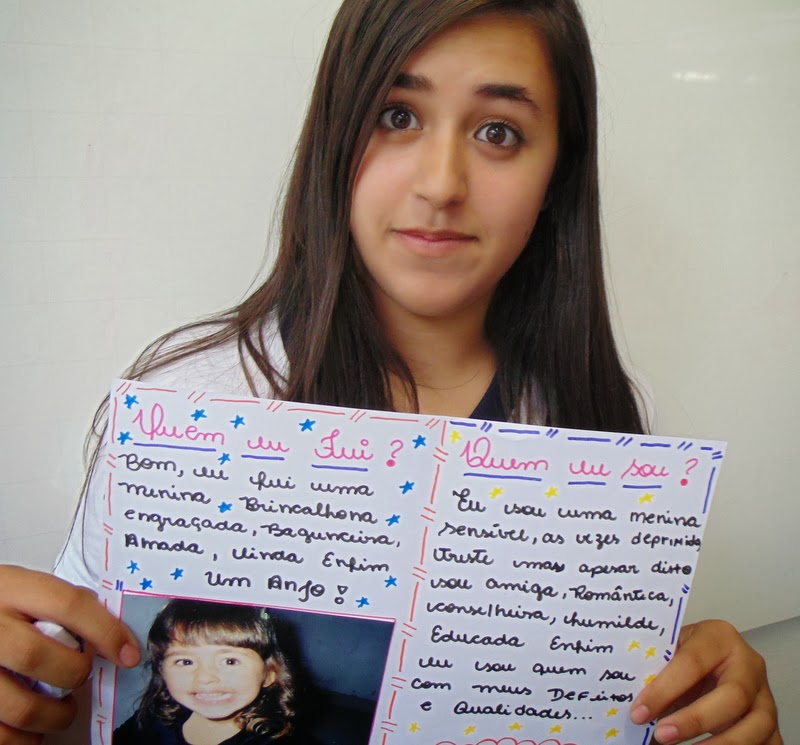 Quem eu Fui ?
Bom, eu fui uma
menina Brincalhona
engraçada, Bagunceira,
Amada, Linda Enfim
um Anjo !
Quem eu sou ?
Eu sou uma menina
sensível, as vezes deprimida,
triste mas apesar disto
sou amiga, Romântica,
conselheira, humilde,
Educada Enfim
eu sou quem sou
com meus Defeitos
e Qualidades...